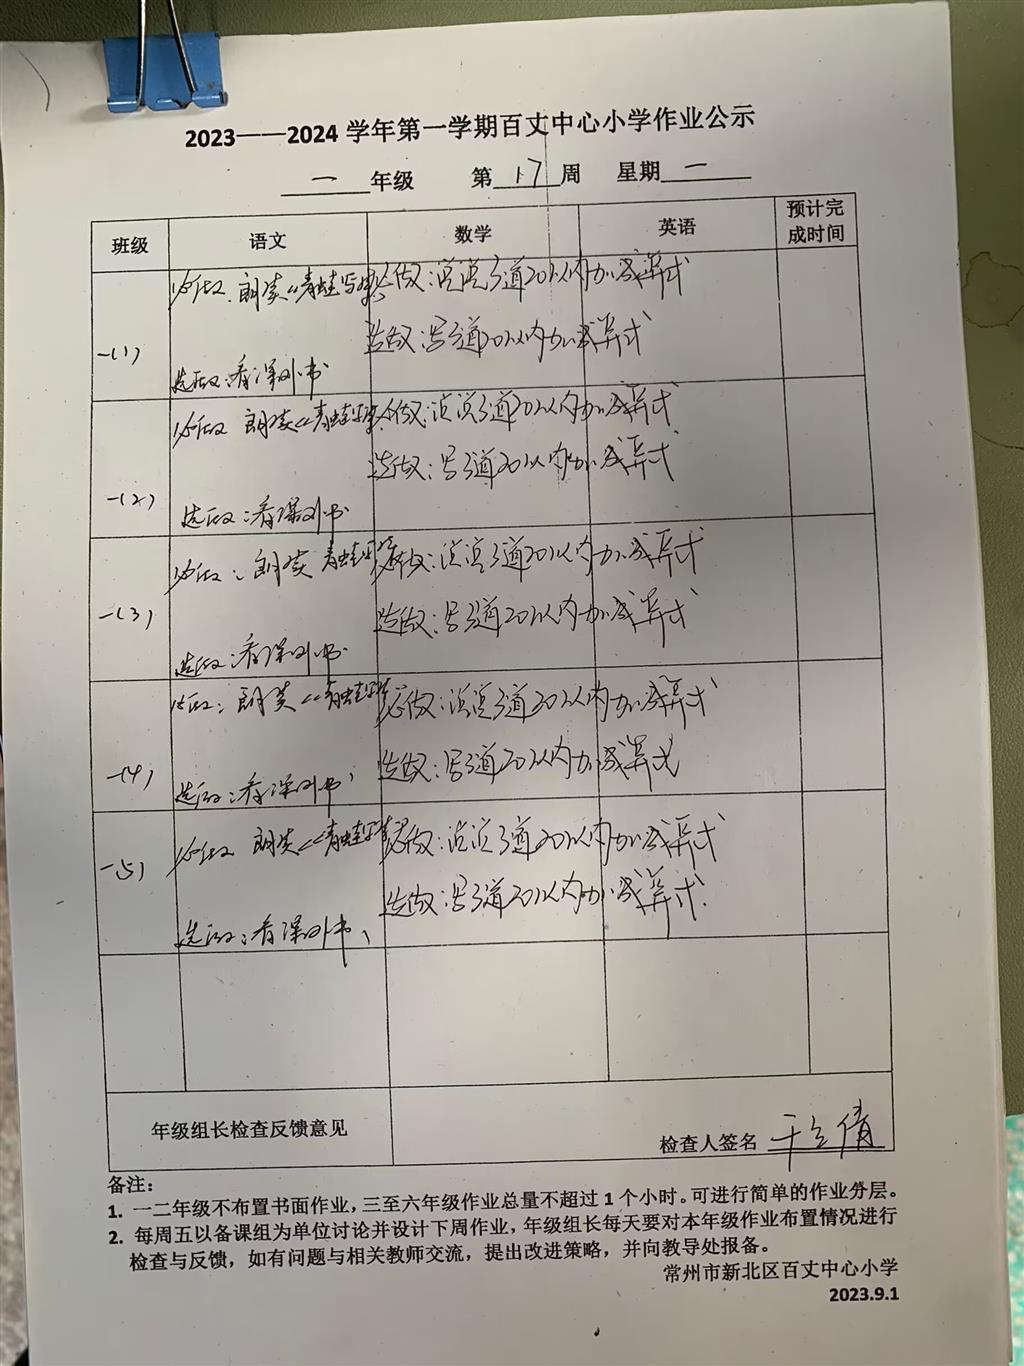 2023——2024 学年第一学期百丈中心小学作业公示
一 年级 第 17 周 星期 一
班级 语文 数学 英语 预计完成时间
一(1)
必做：朗读《青蛙写诗
选做：看课外书
必做：说说3道20以内加减算式
选做：写3道20以内加减算式
一(2)
必做 朗读《青蛙写诗
选做：看课外书
必做：说说3道20以内加减算式
选做：写3道20以内加减算式
一(3)
必做：朗读 青蛙写诗
选做：看课外书
必做：说说3道20以内加减算式
选做：写3道20以内加减算式
一(4)
必做：朗读《青蛙写诗
选做：看课外书
必做：说说3道20以内加减算式
选做：写3道20以内加减算式
一(5)
必做 朗读《青蛙写诗
选做：看课外书
必做：说说3道20以内加减算式
选做：写3道20以内加减算式
年级组长检查反馈意见
检查人签名
备注：
1. 一二年级不布置书面作业，三至六年级作业总量不超过 1 个小时。可进行简单的作业分层。
2. 每周五以备课组为单位讨论并设计下周作业，年级组长每天要对本年级作业布置情况进行
检查与反馈，如有问题与相关教师交流，提出改进策略，并向教导处报备。
常州市新北区百丈中心小学
2023.9.1